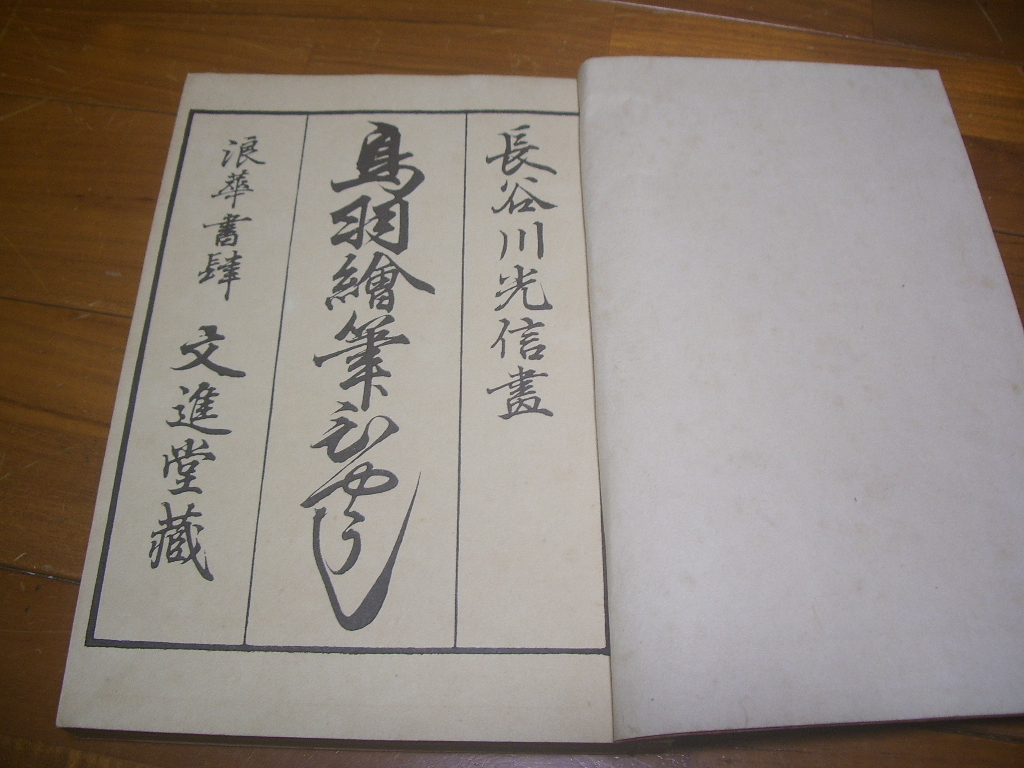 長谷川光信畫
鳥羽繪筆びやうし
浪華書肆 文進堂藏